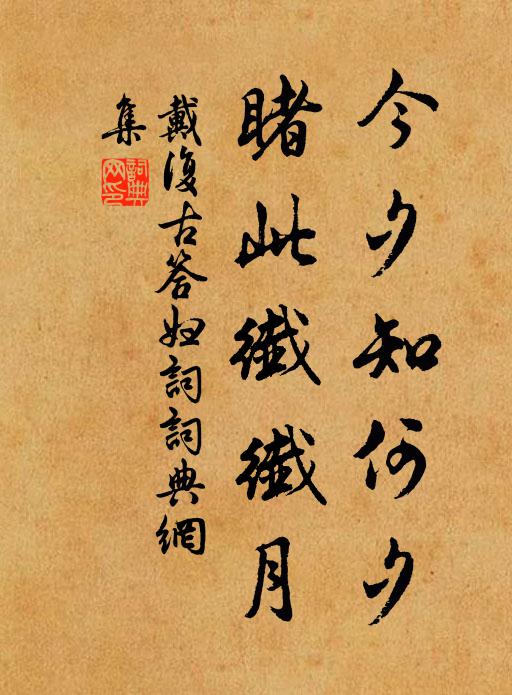 今夕知何夕
睹此纖纖月
戴復古答妇詞詞典網
集
詞典網印